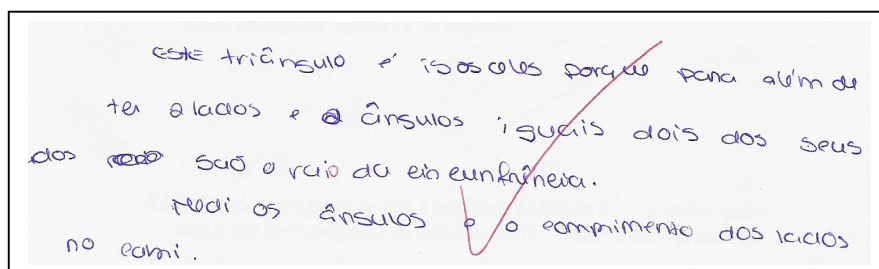 Este triângulo é isosceles porque para além de
ter 2 lados e 2 ângulos iguais dois dos seus
dos são o raio da circunfrência.
Medi os ângulos e o comprimento dos lados
no cabri.